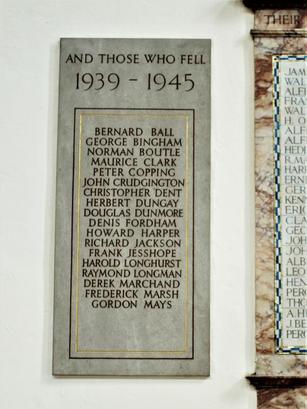 AND THOSE WHO FELL
1939 - 1945
BERNARD BALL
GEORGE BINGHAM
NORMAN BOUTLE
MAURICE CLARK
PETER COPPING
JOHN CRUDGINGTON
CHRISTOPHER DENT
HERBERT DUNGAY
DOUGLAS DUNMORE
DENIS FORDHAM
HOWARD HARPER
RICHARD JACKSON
FRANK JESSHOPE
HAROLD LONGHURST
RAYMOND LONGMAN
DEREK MARCHAND
FREDERICK MARSH
GORDON MAYS
THEIR
JAM
WAL
ALF
FRA
WAL
H. O
ALF
ALF
HED
R.M
HAR
ERN
GE
KEN
ERIC
CL
GEO
JOH
JOH
ALB
LEO
HEN
PERC
THO
A. H
J. BE
PERC